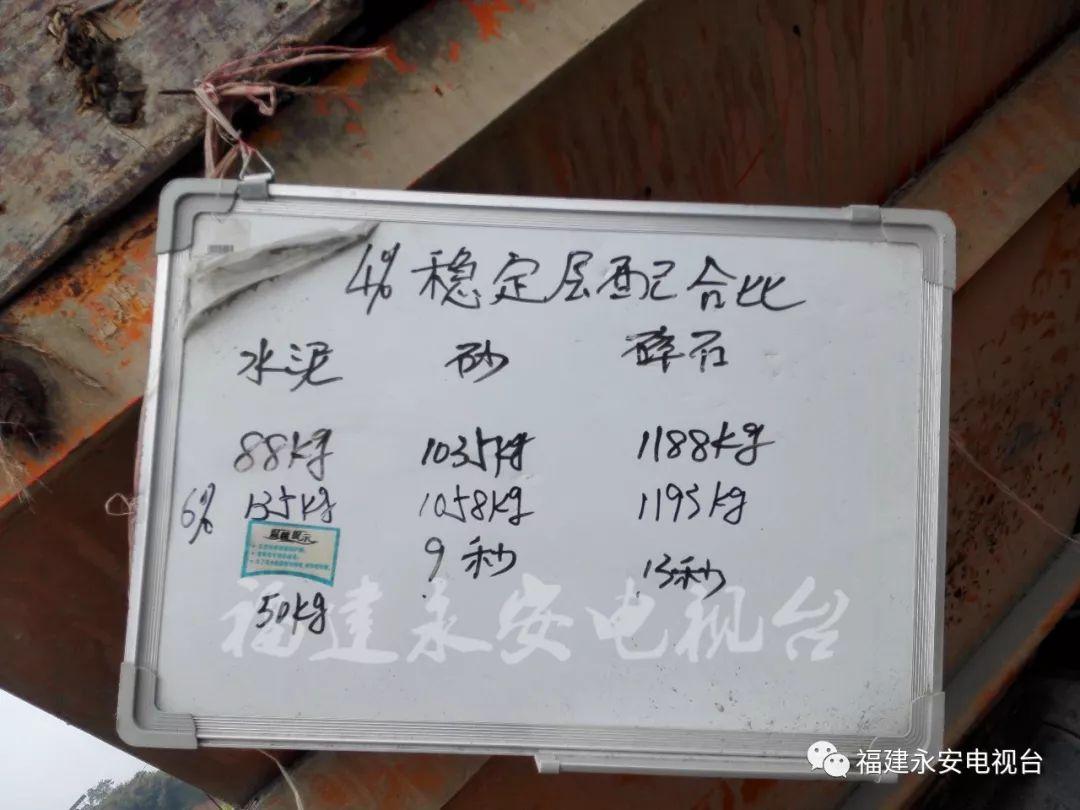 4% 稳定层配合比
水泥 砂 碎石
88kg 1035kg 1188kg
6% 135kg 1058kg 1193kg
温馨提示
9秒 13秒
50kg
福建永安电视台
福建永安电视台